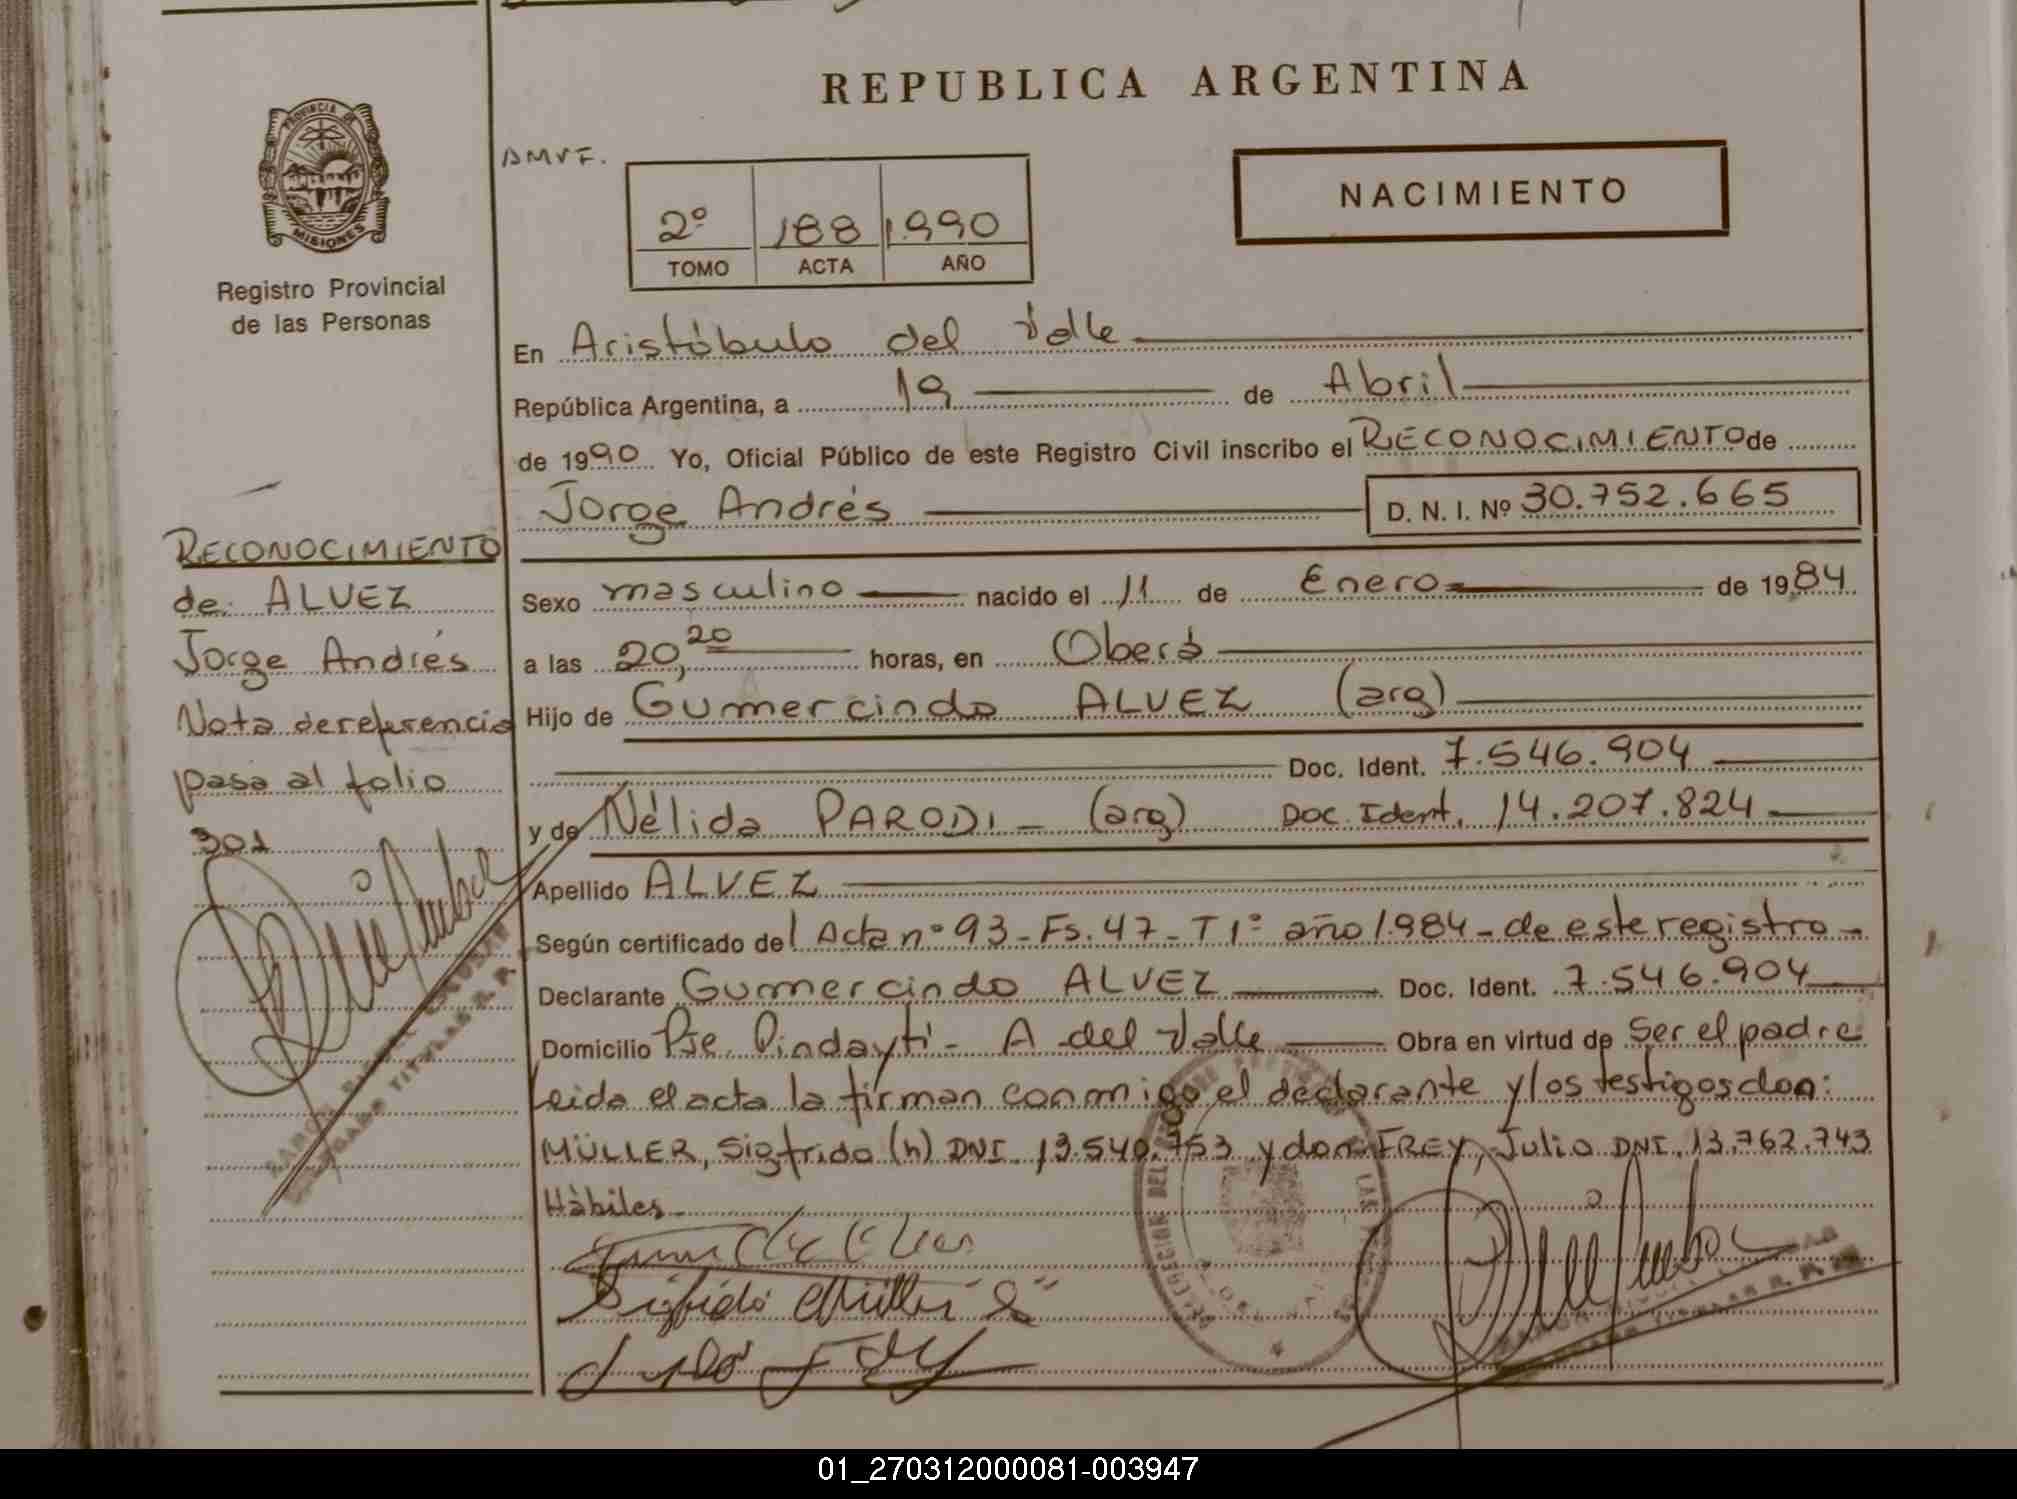 REPUBLICA ARGENTINA
PROVINCIA DE
MISIONES
Registro Provincial
de las Personas
NACIMIENTO
2º 188 1.990
TOMO ACTA AÑO
En Aristóbulo del Valle
República Argentina, a 19 de Abril
de 1990 Yo, Oficial Público de este Registro Civil inscribo el RECONOCIMIENTO de
Jorge Andrés D. N. I. Nº 30.752.665
Sexo masculino nacido el 11 de Enero de 1984
a las 20,20 horas, en Oberá
Hijo de Gumercindo ALVEZ (arg)
Doc. Ident. 7.546.904
y de Nélida PARODI - (arg) Doc. Ident. 14.207.824
Apellido ALVEZ
Según certificado del Acta nº 93 - Fs. 47 - T 1º año 1.984 - de este registro -
Declarante Gumercindo ALVEZ Doc. Ident. 7.546.904
Domicilio Pje. Pindaytí - A del Valle Obra en virtud de Ser el padre
Leida el acta la firman conmigo el declarante y los testigos don:
MÜLLER, Sigfrido (h) DNI. 13.540.753 y don: FREY, Julio DNI. 13.762.743
Hàbiles -
RECONOCIMIENTO
de: ALVEZ
Jorge Andrés
Nota de referencia
pasa al folio
301
01_270312000081-003947